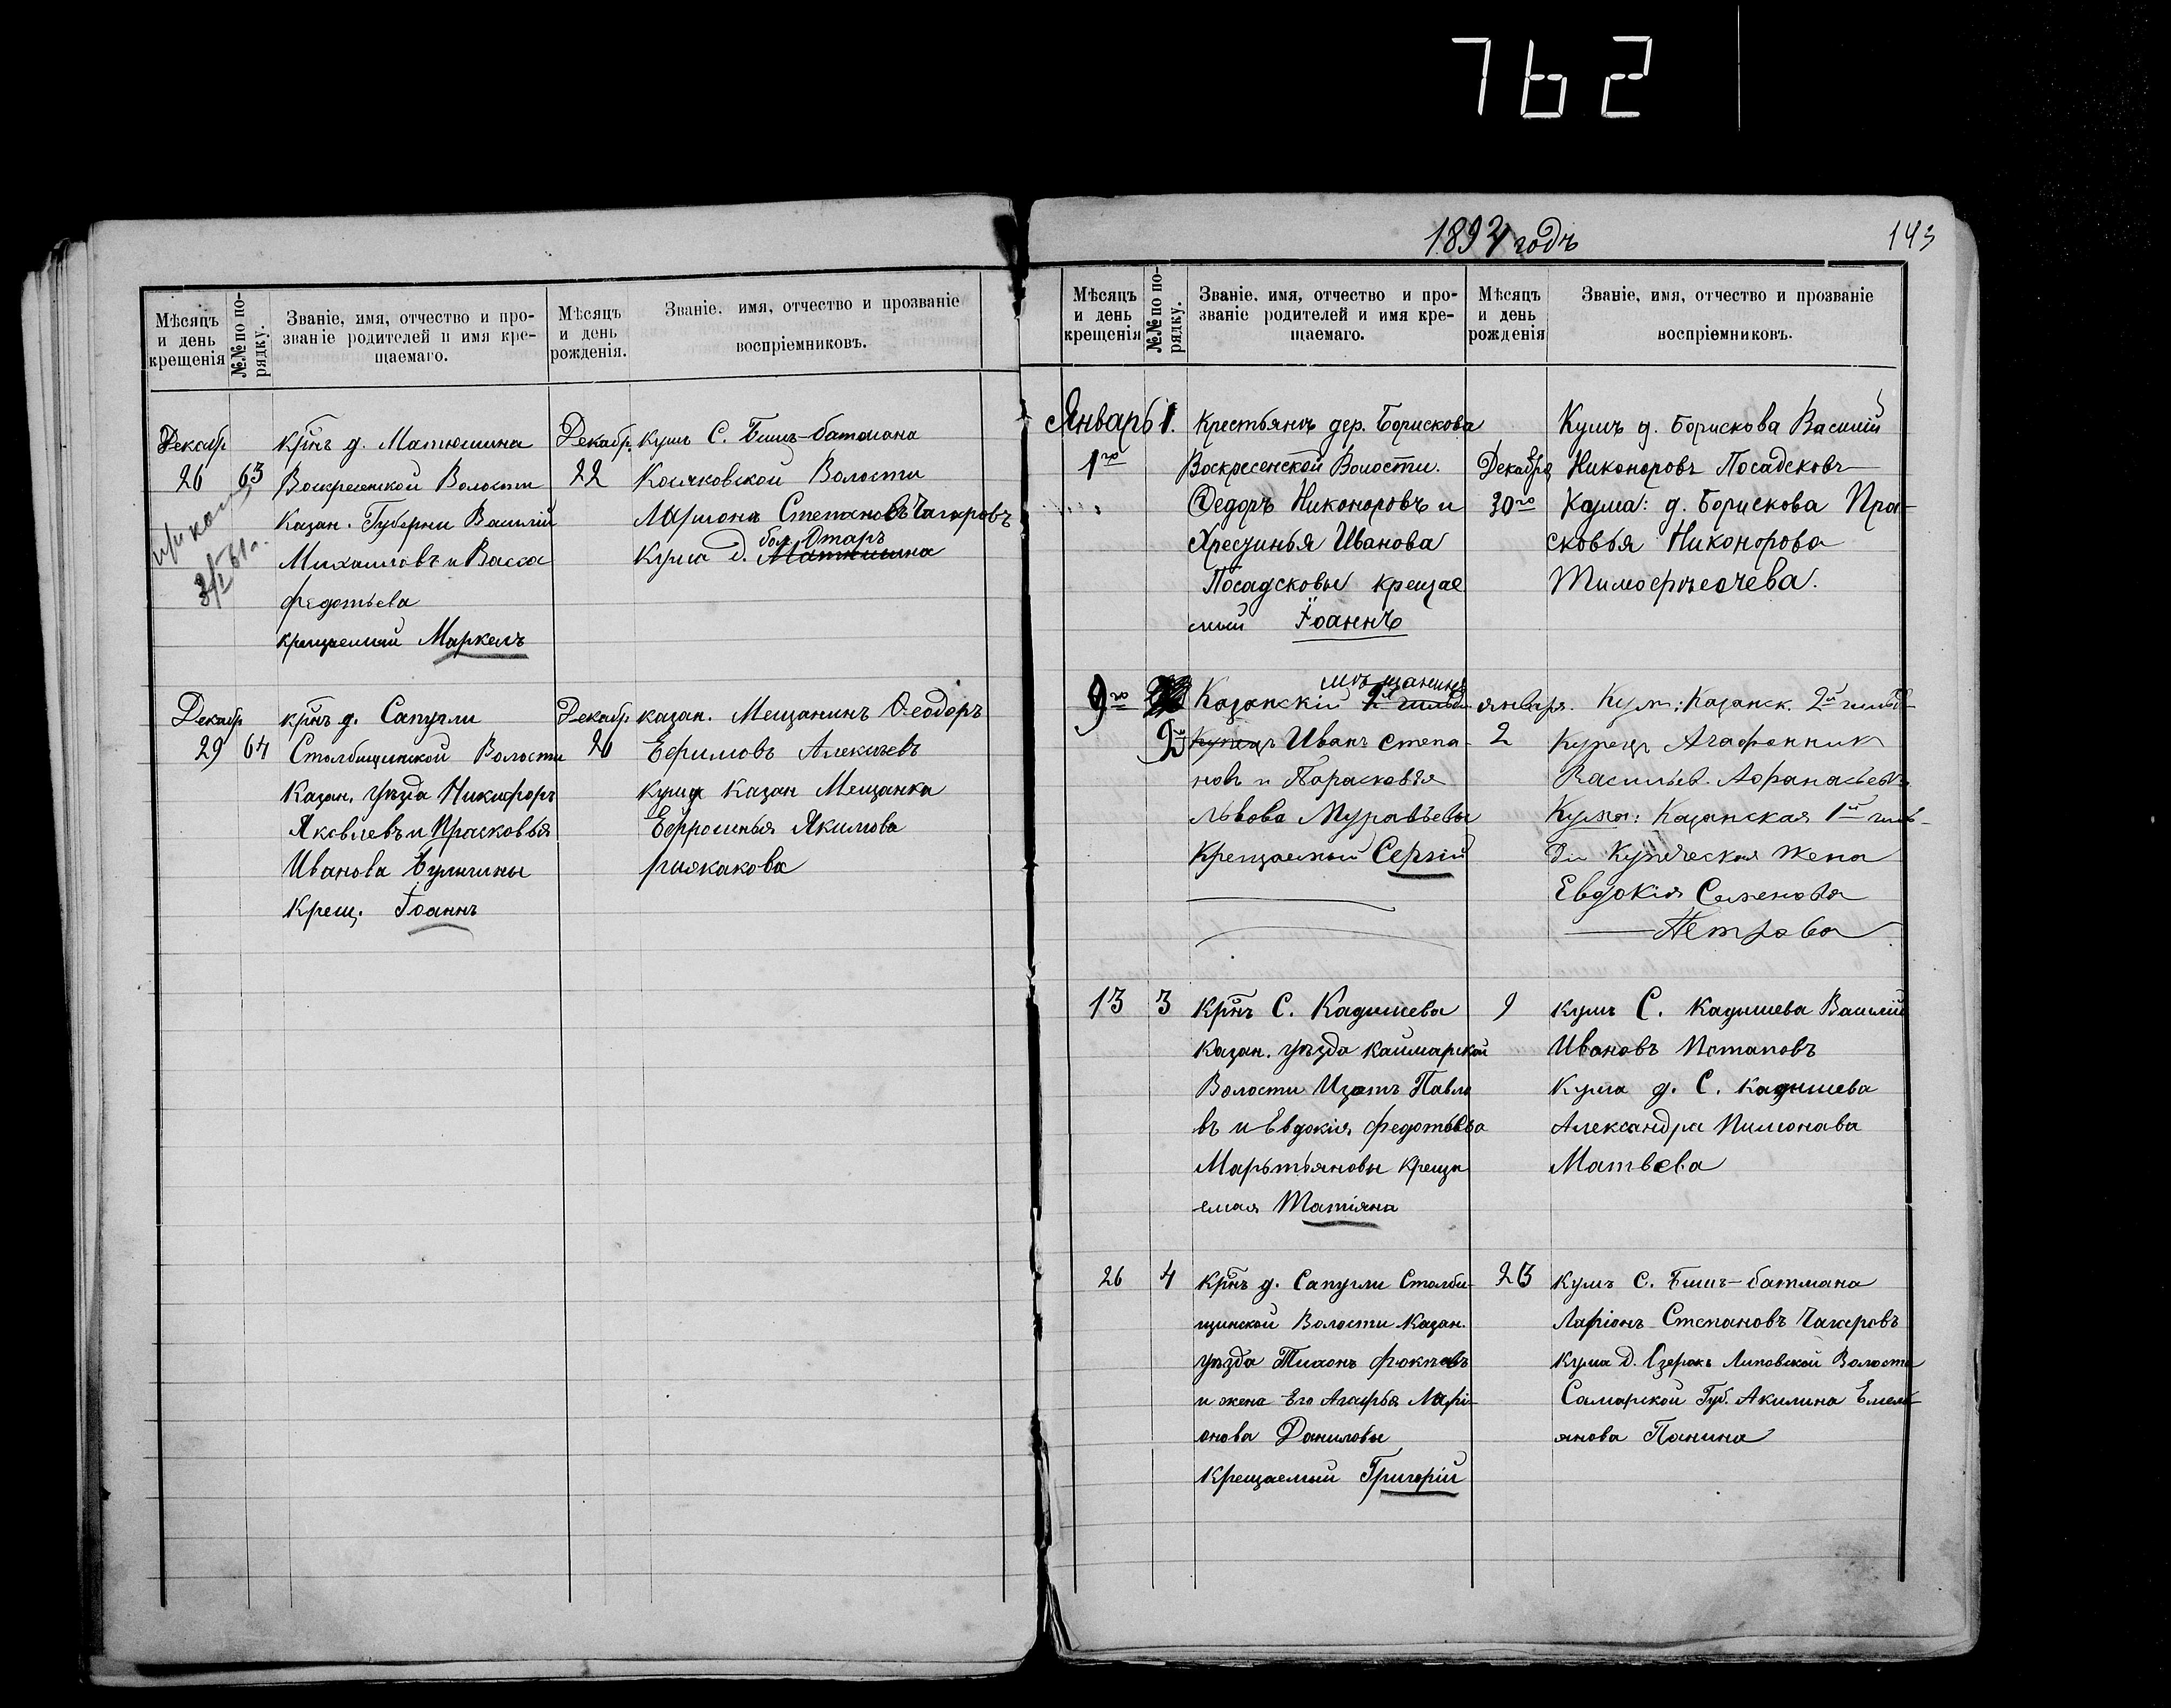 762
Мѣсяцъ и день крещенія
№№ по порядку.
Званіе, имя, отчество и прозваніе родителей и имя крещаемаго.
Мѣсяцъ и день рожденія.
Званіе, имя, отчество и прозваніе воспріемниковъ.
Декабр
26
63
Крнъ д. Матюшина
Воскресенской Волости
Казан. Губерни Василій
Михаиловъ и Васса
Федотьева
крещаемый Маркелъ
Декабр.
22
Кумъ С. Бишъ-батмана
Степановъ Чагаровъ
бол. Отаръ
Кума д. Матюшина
Декабр
29
64
крнъ д. Сапугли
Столбищинской Волости
Казан. уѣзда Никифоръ
Яковлевъ и Прасковья
Иванова
Крещ. Іоаннъ
Декабр
26
казан. Мещанинъ Ѳеодоръ
Ефимовъ Алексѣевъ
кума Казан Мещанка
Ефросинья Якимова
1892 годъ
143
Мѣсяцъ и день крещенія
№№ по порядку.
Званіе, имя, отчество и прозваніе родителей и имя крещаемаго.
Мѣсяцъ и день рожденія
Званіе, имя, отчество и прозваніе воспріемниковъ.
Январь
1го
1.
Крестьянъ дер. Борискова
Воскресенской Волости.
Федоръ Никоноровъ и
Иванова
Посадсковы крещае
мый Іоаннъ
Декабря
30го
Кумъ д. Борискова Василій
Никоноровъ Посадсковъ
Кума: д. Борискова Пра-
сковья Никонорова
9го
2й
мѣщанинъ
Казанскій 2й гильд
Купецъ Иванъ Степа-
новъ и Парасковѣя
Львова Муравьевы
Крещаемый Сергій
января.
2
Кум: Казанск. 2й гильд
Купецъ Агафонник
Васильев. Афанасьевъ
Кума: Казанская 1й гиль-
діи Купеческая жена
Евдокія Семеновѣа
Петрова
13
3
Крнъ С. Кадышева
Казан. уѣзда Каймарской
Волости Изотъ Павло
въ и Евдокія Федотьева
Мартьяновы Креща
емая Татіяна
9
кумъ С. Кадышева Василій
Ивановъ Потаповъ
Кума д. С. Кадышева
Александра Пимонава
Матвева
26
4
Крнъ д. Сапугли Столби-
щинской Волости Казан.
уѣзда Тихонъ
и жена Его Агафья Ларі-
онова Даниловы
Крещаемый Григорій
23
Кумъ С. Бишъ-батмана
Ларіонъ Степановъ Чагаровъ
Кума Д. Озерокъ Липовской Волости
Самарской Губ. Акилина Емель-
янова Панина